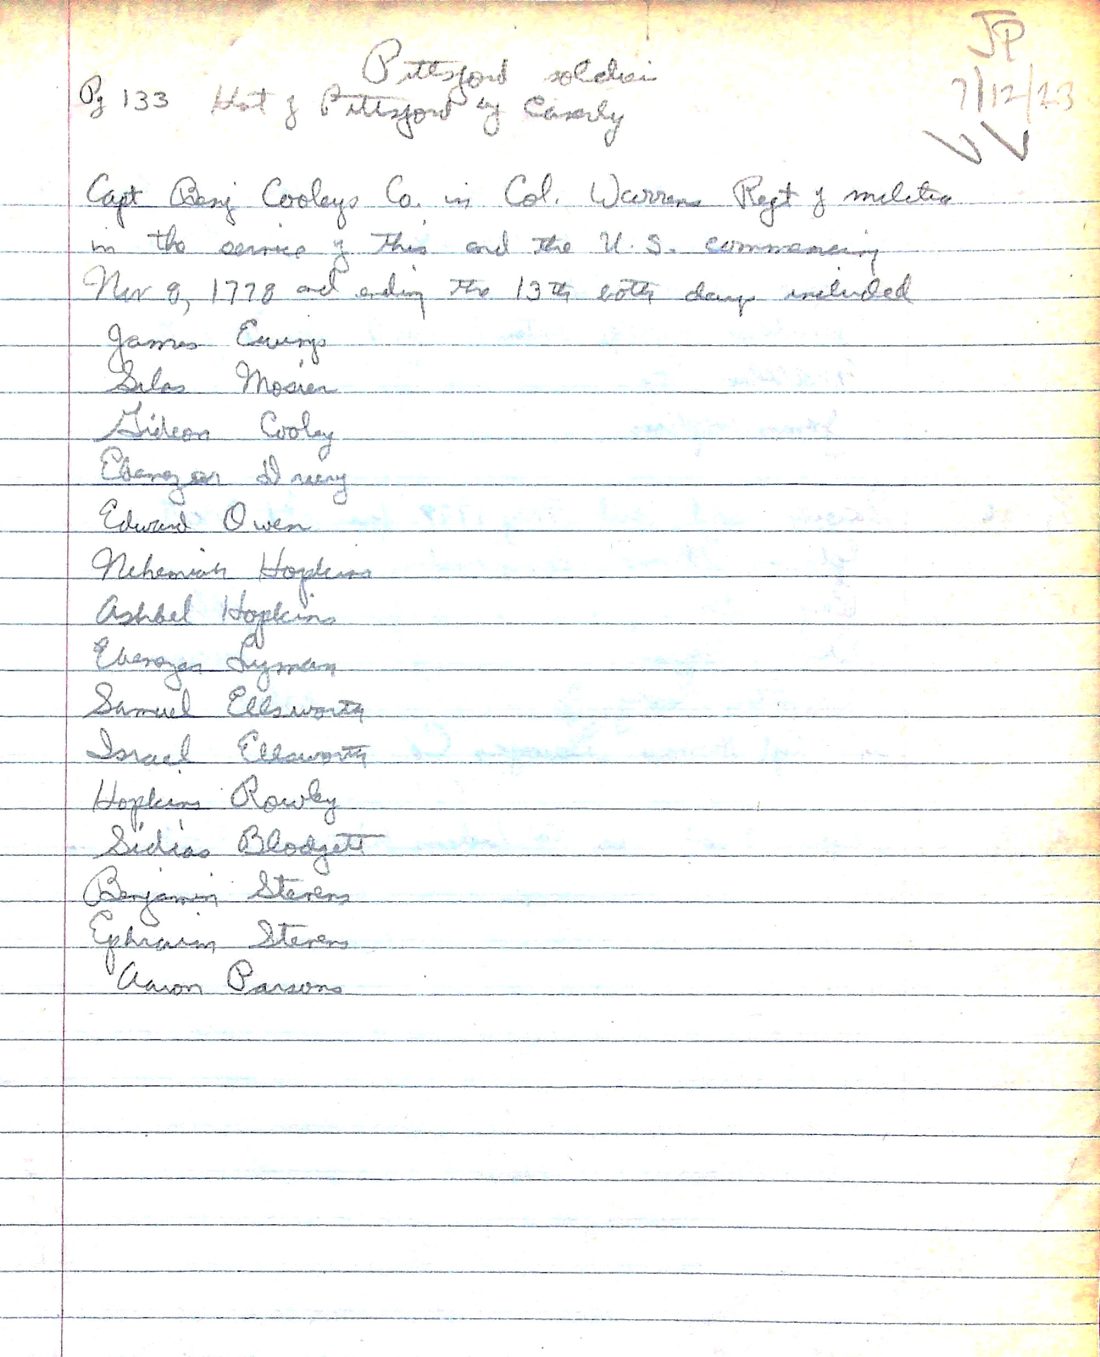 JP
Pittsford soldiers
7/12/23
Pg 133 Hist of Pittsford by Caverly
Capt Benj Cooleys Co. in Col. Warrens Regt of militia
in the service of this and the U.S. commencing
Nov 8, 1778 and ending the 13th both days included
James Ewings
Silas Mosier
Gideon Cooley
Ebenezer Drury
Edward Owen
Nehemiah Hopkins
Ashbel Hopkins
Ebenezer Lyman
Samuel Ellsworth
Israel Ellsworth
Hopkins Rowley
Sidias Blodgett
Benjamin Stevens
Ephraim Stevens
Aaron Parsons